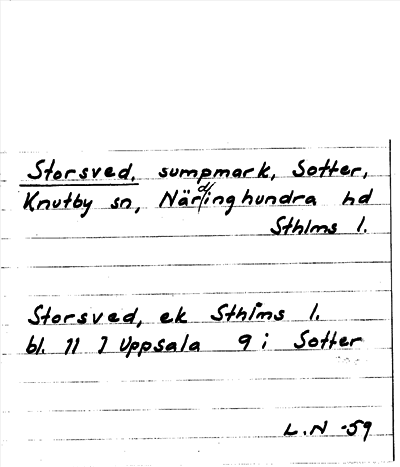 Storsved, sumpmark, Sotter,
Knutby sn, Närdinghundra hd
Sthlms l.
Storsved, ek Sthlms l.
bl. 11 J Uppsala 9 i Sotter
L.N -59